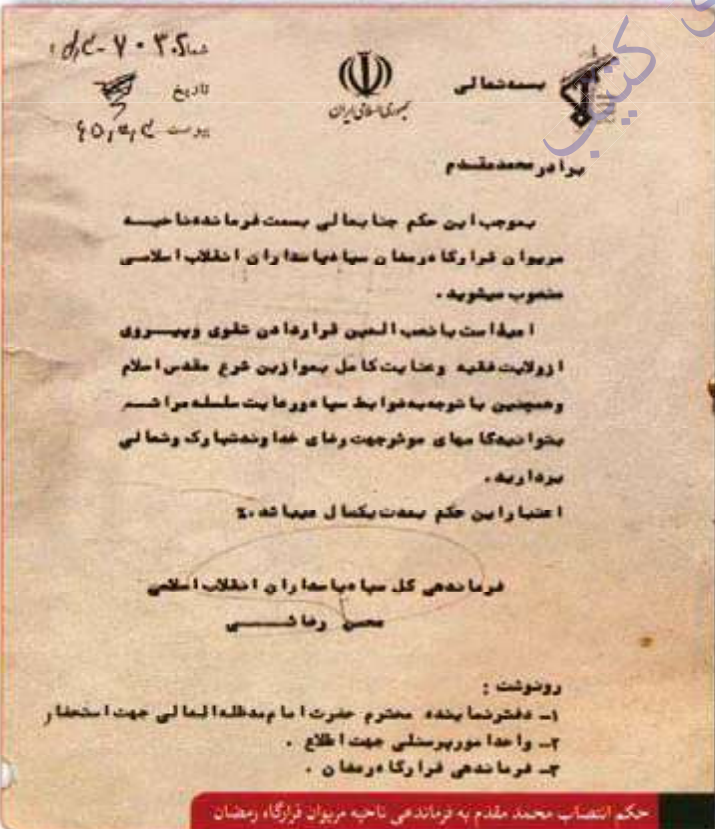 بسمه تعالی
جمهوری اسلامی ایران
شماره
تاریخ
پیوست
برادر محمد مقدم
بموجب این حکم جنابعالی بسمت فرمانده ناحیه
مریوان قرارگاه رمضان سپاه پاسداران انقلاب اسلامی
منصوب میشوید .
امید است با نصب العین قراردادن تقوی وپیروی
ازولایت فقیه وعنایت کامل بموازین شرع مقدس اسلام
وهمچنین با توجه به ضوابط سپاه ورعایت سلسله مراتب
بتوانید گامهای موثرجهت رضای خداوند تبارک وتعالی
بردارید .
اعتبار این حکم بمدت یکسال میباشد .٪
فرماندهی کل سپاه پاسداران انقلاب اسلامی
محسن رضائی
رونوشت :
۱ـ دفترنماینده محترم حضرت امام مدظله العالی جهت استحضار
۲ـ واحد امورپرسنلی جهت اطلاع .
۳ـ فرماندهی قرارگاه رمضان .
حکم انتصاب محمد مقدم به فرماندهی ناحیه مریوان قرارگاه رمضان